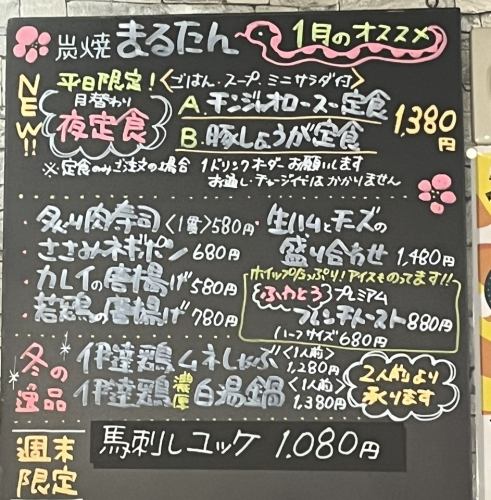 炭焼 まるたん 1月のオススメ
NEW!!
平日限定!<ごはん・スープ・ミニサラダ付>
月替わり
夜定食
A.チンジャオロースー定食
B.豚しょうが定食
1,380円
※定食のみご注文の場合 1ドリンクオーダーお願いします
お通し・チャージ代はかかりません
・炙り肉寿司<1貫>580円
・ささみネギポン 680円
・カレイの唐揚げ 580円
・若鶏の唐揚げ 780円
・生ハムとチーズの
盛り合わせ 1,480円
ホイップたっぷり!アイスものってます!!
ふわとろ プレミアム
フレンチトースト 880円
ハーフサイズ 680円
冬の逸品
伊達鶏ムネしゃぶ <1人前> 1,280円
伊達鶏濃厚白湯鍋 <1人前> 1,380円
2人前より
承ります
週末限定
馬刺しユッケ 1,080円